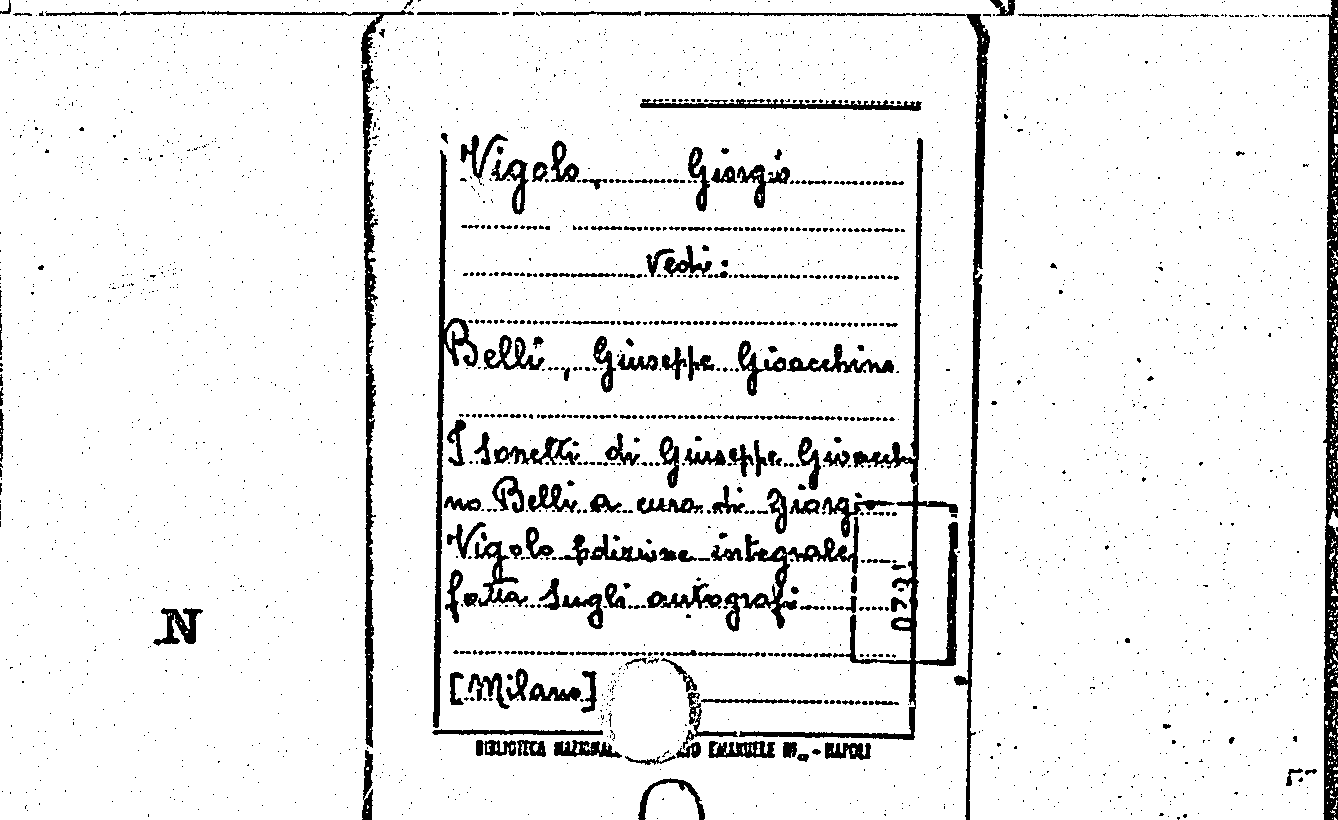 Vigolo, Giorgio
Vedi:
Belli, Giuseppe Gioacchino
I Sonetti di Giuseppe Gioacchi
no Belli a cura di Giorgio
Vigolo Edizione integrale
fatta sugli autografi
[Milano]
BIBLIOTECA NAZIONALE EMANUELE III - NAPOLI
N